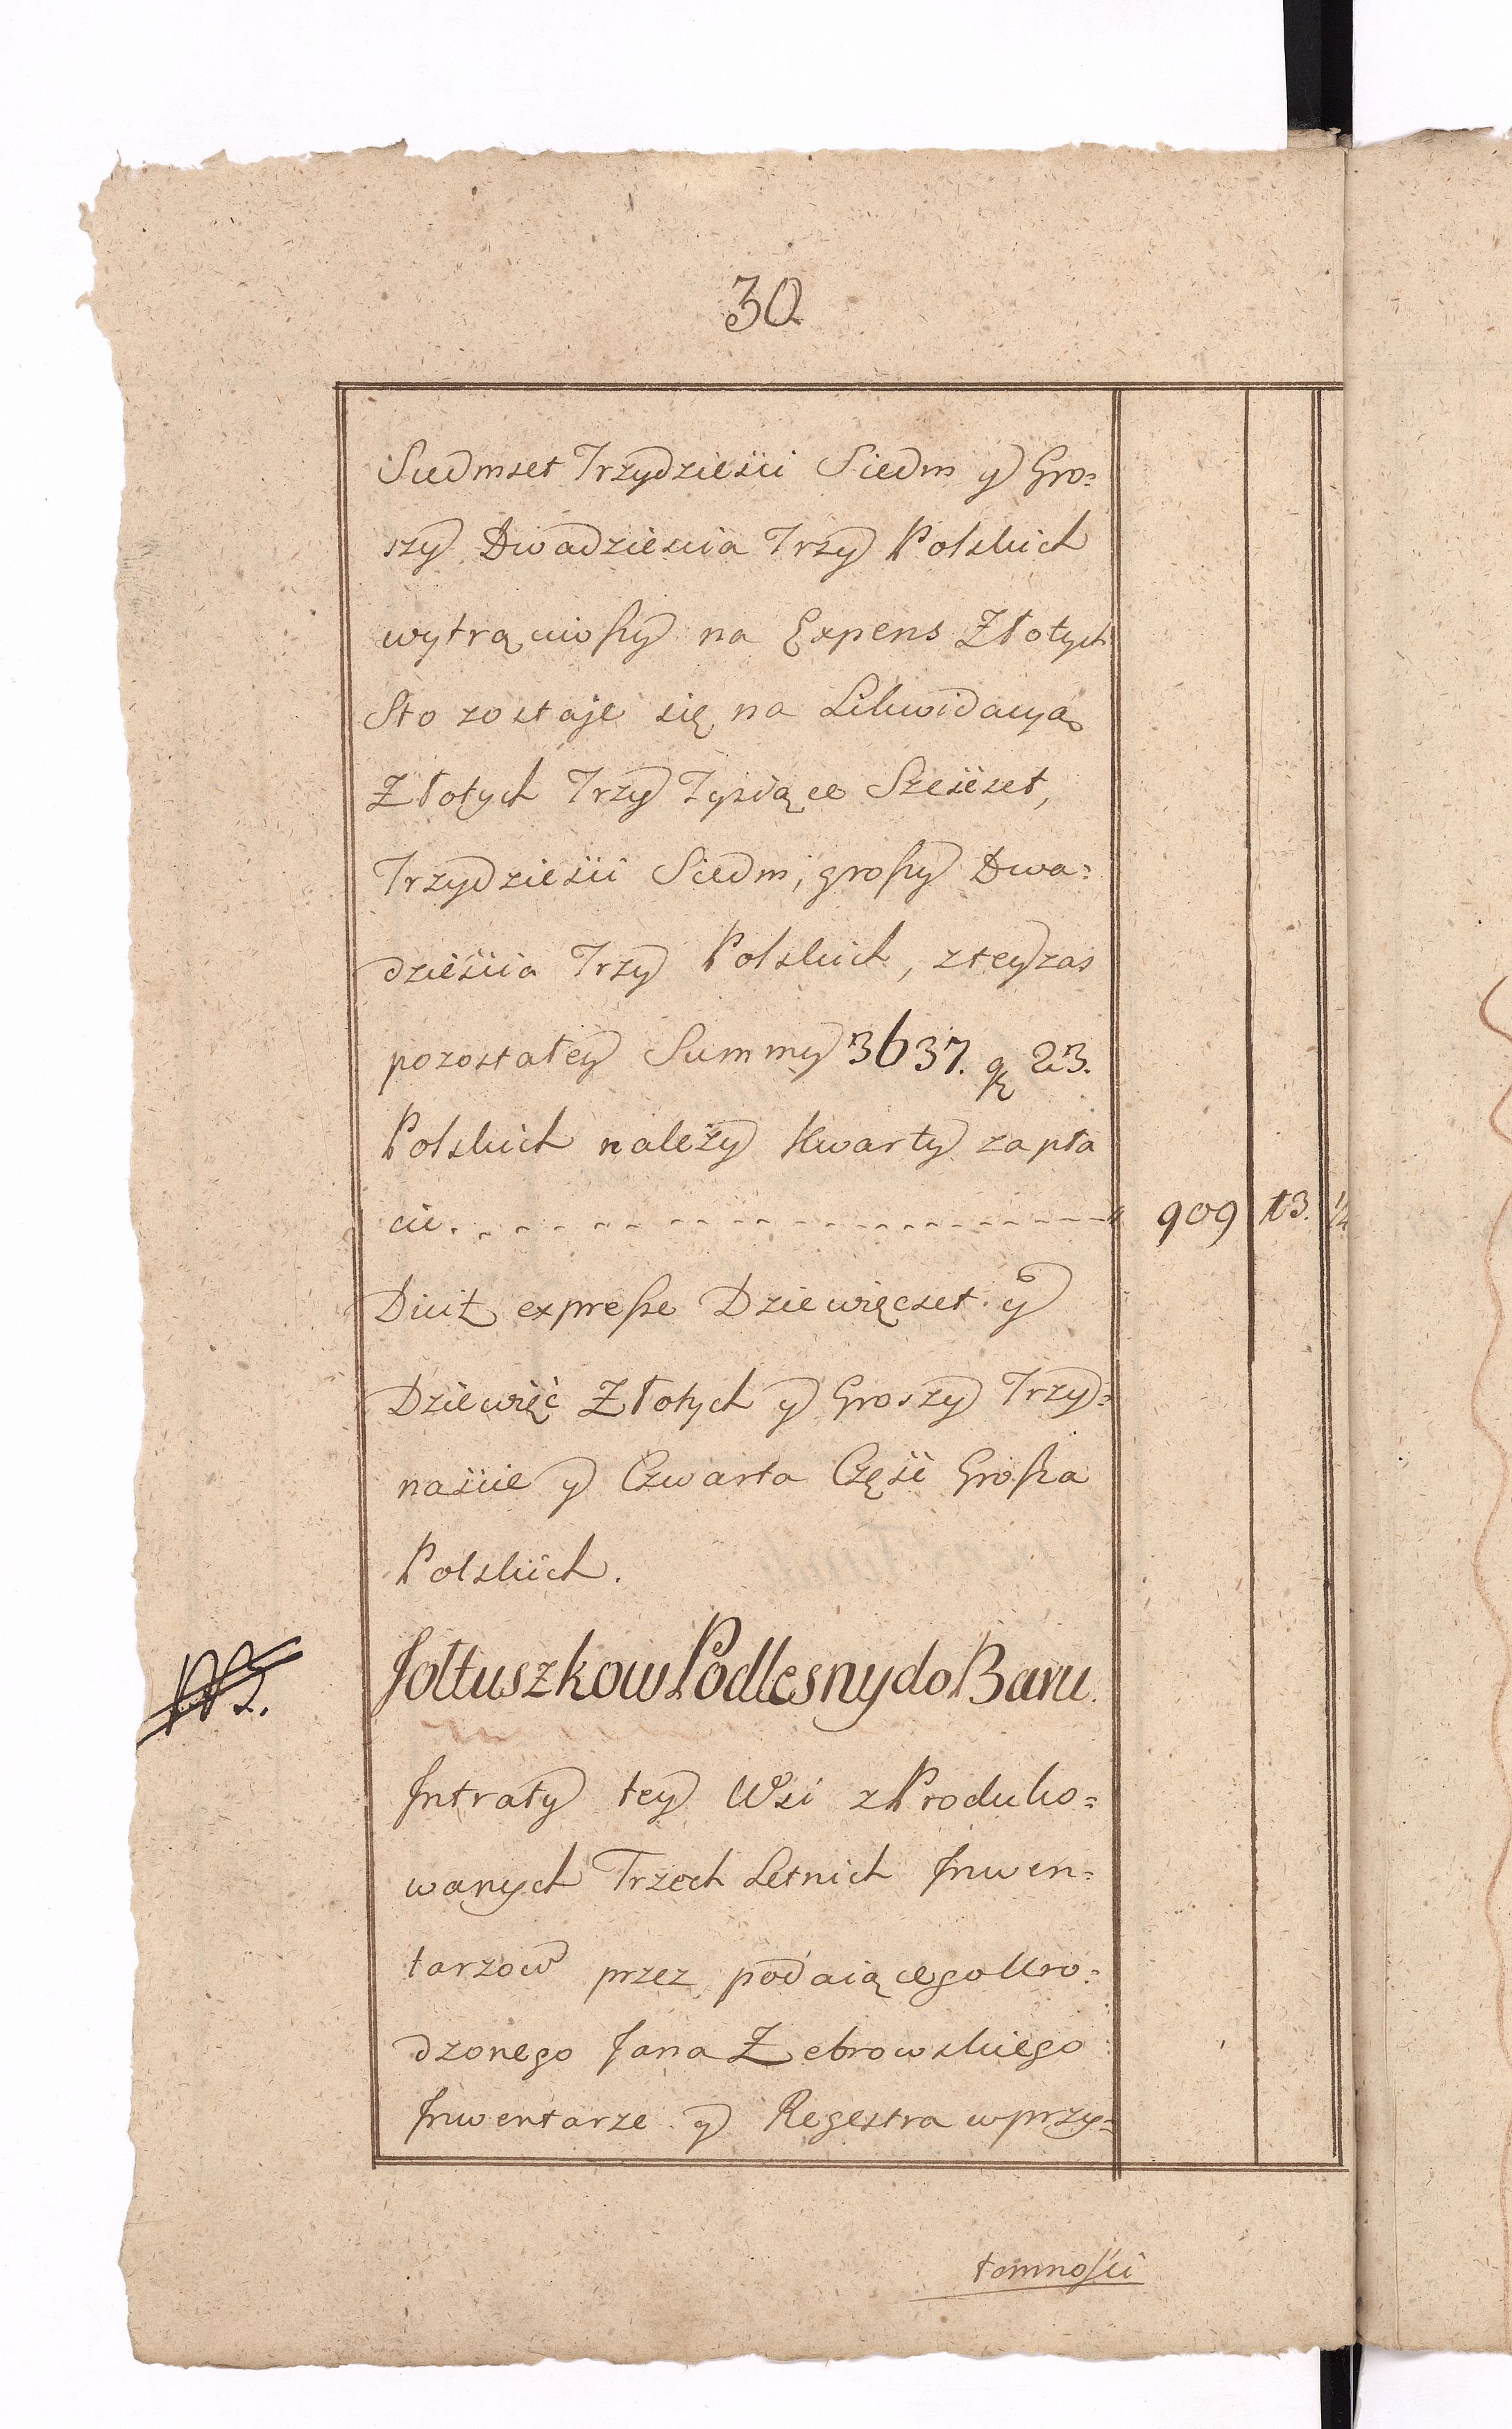 30
Siedmset Trzydzieści Siedm y Gro=
szy Dwadziescia Trzy Polskich
wytrąciwszy na Expens Złotych
Sto zostaje się na Likwidacyą
Złotych Trzy Tysiące Sześćset,
Trzydzieści Siedm, groszy Dwa=
dzieścia Trzy Polskich, z tey zas
pozostałey Summy 3637. gr 23.
Polskich należy Kwarty zapła
cic. 909 13. 1/4
Dicit expresse Dziewięcset y
Dziewięć Złotych y Groszy Trzy=
naście y Czwarta Część Grosza
Polskich.
Jołtuszkow Podlesny do Baru.
Intraty tey Wsi z Produko=
wanych Trzech Letnich Inwen=
tarzow przez podaiącego Uro=
dzonego Jana Żebrowskiego
Inwentarze y Regestra w przy=
tomności